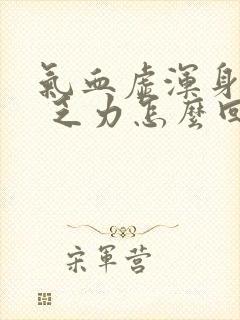 氣血虛渾身
乏力怎麼回
宋軍营